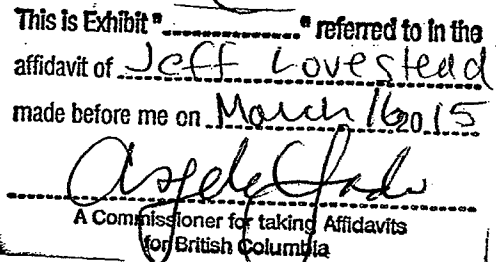 This is Exhibit "............" referred to in the
affidavit of Jeff Lovestead
made before me on March 16 20 15
A Commissioner for taking Affidavits
for British Columbia